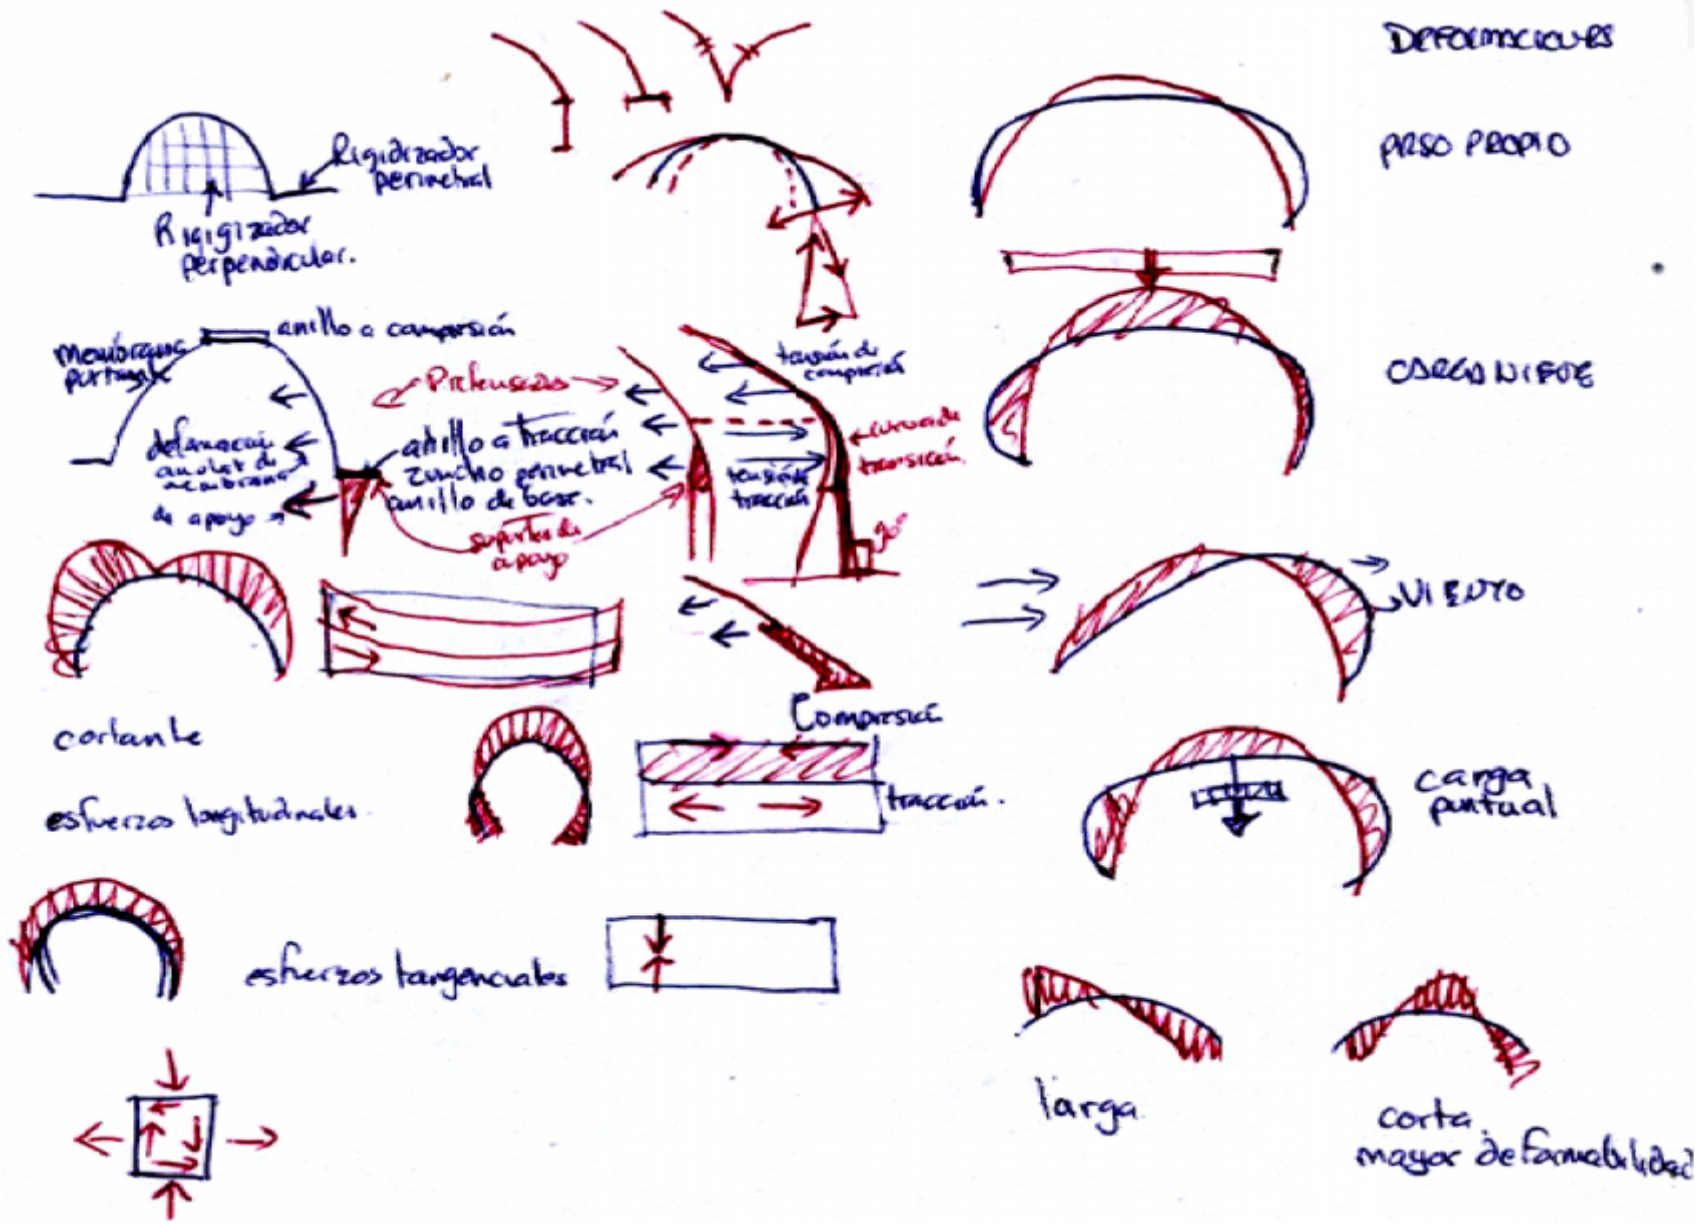 DEFORMACIONES
PESO PROPIO
Rigidizador
perimetral
Rigigizador
perpendicular.
anillo a compresión
membrana
portante
Pretensados
tensión de
compresión
CARGA NIEVE
deformación
anular de
membrana
de apoyo
anillo a tracción
zuncho perimetral
anillo de base.
tensión de
tracción
curva de
transición.
soportes de
apoyo
90°
VIENTO
cortante
Compresión
esfuerzos longitudinales.
tracción.
carga
puntual
esfuerzos tangenciales
larga
corta
mayor deformabilidad